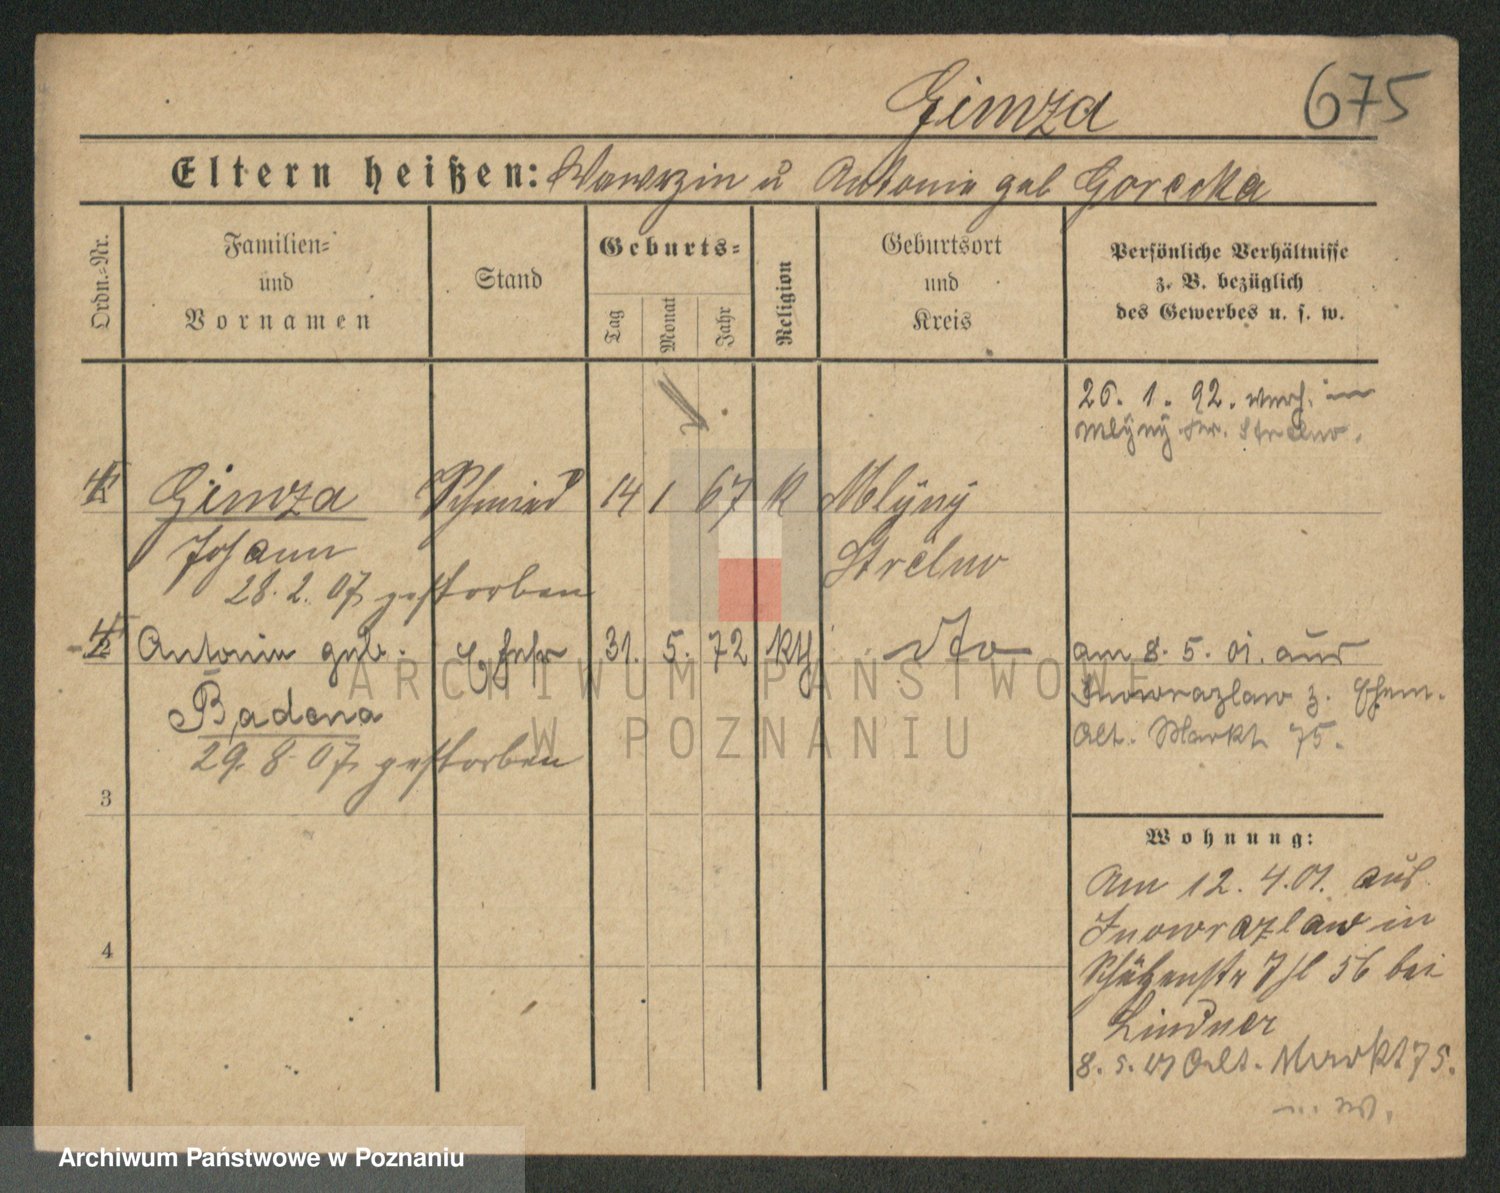 Gimza 675
Eltern heißen: Wawrzin u Antonie geb Gorecka
Ordn.=Nr.
Familien=
und
Vornamen
Stand
Geburts=
Tag
Monat
Jahr
Religion
Geburtsort
und
Kreis
Persönliche Verhältnisse
z. B. bezüglich
des Gewerbes u. s. w.
26. 1. 92. verh. in
Mlÿnÿ Kr. Strelno.
1 Gimza Schmied 14 1 67 K Mlÿnÿ
Johann Strelno
28. 2. 07 gestorben
2 Antonie geb. Ehefr 31. 5. 72 dto
Badona
29. 8. 07 gestorben
am 8. 5. 01. aus
Inowrazlaw z. Ehem.
Alt. Markt 75.
3
4
Wohnung:
Am 12. 4. 01. aus
Inowrazlaw in
Schützenstr 56 bei
Lindner
8. 5. 01 Alt. Markt 75.
ARCHIWUM PAŃSTWOWE
W POZNANIU
Archiwum Państwowe w Poznaniu